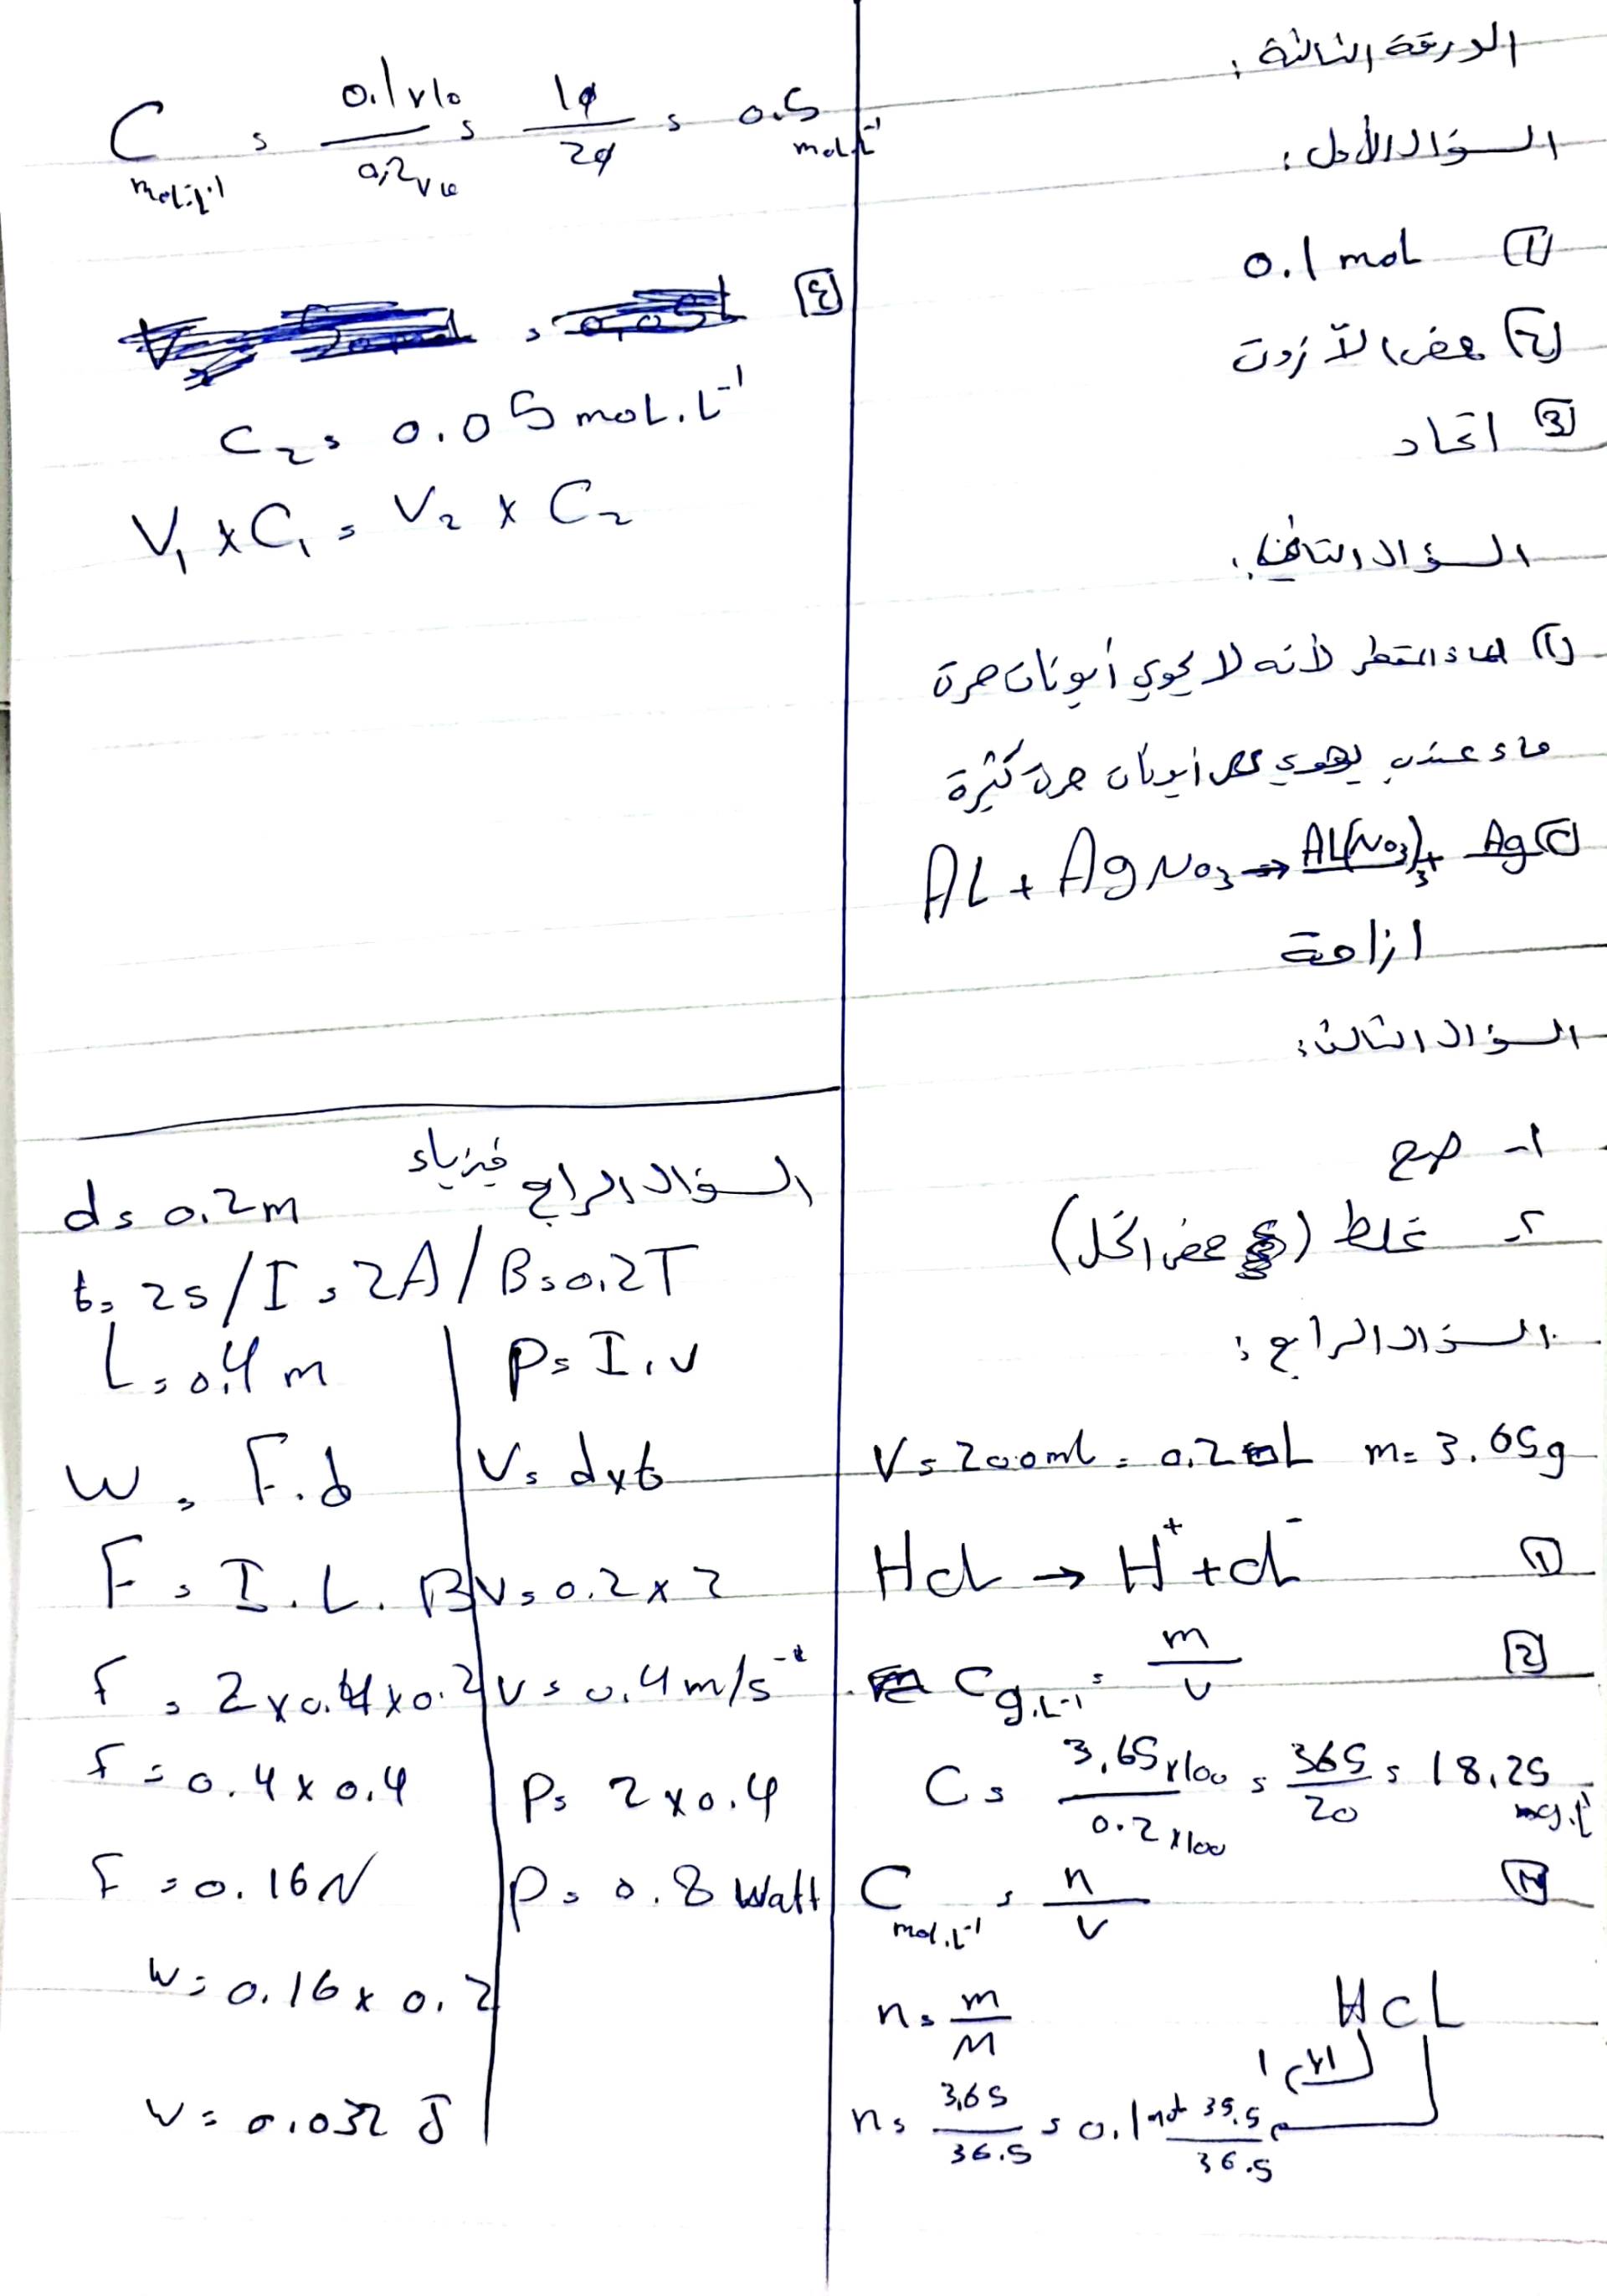 الورقة الثالثة:
السؤال الأول:
1) 0.1 mol
2) حمض الآزوت
3) اتحاد
السؤال الثاني:
1) الماء المقطر لأنه لا يحوي أيونات حرة
ماء عذب يحوي أيونات حرة كثيرة
2) AL + AgNO3 → AL(NO3)3 + Ag
ازاحة
السؤال الثالث:
1- صح
2- غلط (حمض الخل)
السؤال الرابع:
V = 200ml = 0.2 L m = 3.65g
1) HcL → H+ + cl-
2) C g.L-1 = m/v
C = 3.65x100/0.2x100 = 365/20 = 18.25 g.L-1
3) C mol.L-1 = n/v
n = m/M HCL
1x1
n = 3.65/36.5 = 0.1 mol 35.5
36.5
C mol.L-1 = 0.1x10/0.2x10 = 10/20 = 0.5 mol.L-1
4)
C2 = 0.05 mol.L-1
V1 x C1 = V2 x C2
السؤال الرابع فيزياء
d = 0.2m
t = 2s / I = 2A / B = 0.2T
L = 0.4 m
W = F.d
F = I.L.B
F = 2x0.4x0.2
F = 0.4 x 0.4
F = 0.16N
W = 0.16 x 0.2
W = 0.032 J
P = I.v
V = dxt
V = 0.2 x 2
V = 0.4 m/s-1
P = 2 x 0.4
P = 0.8 Watt